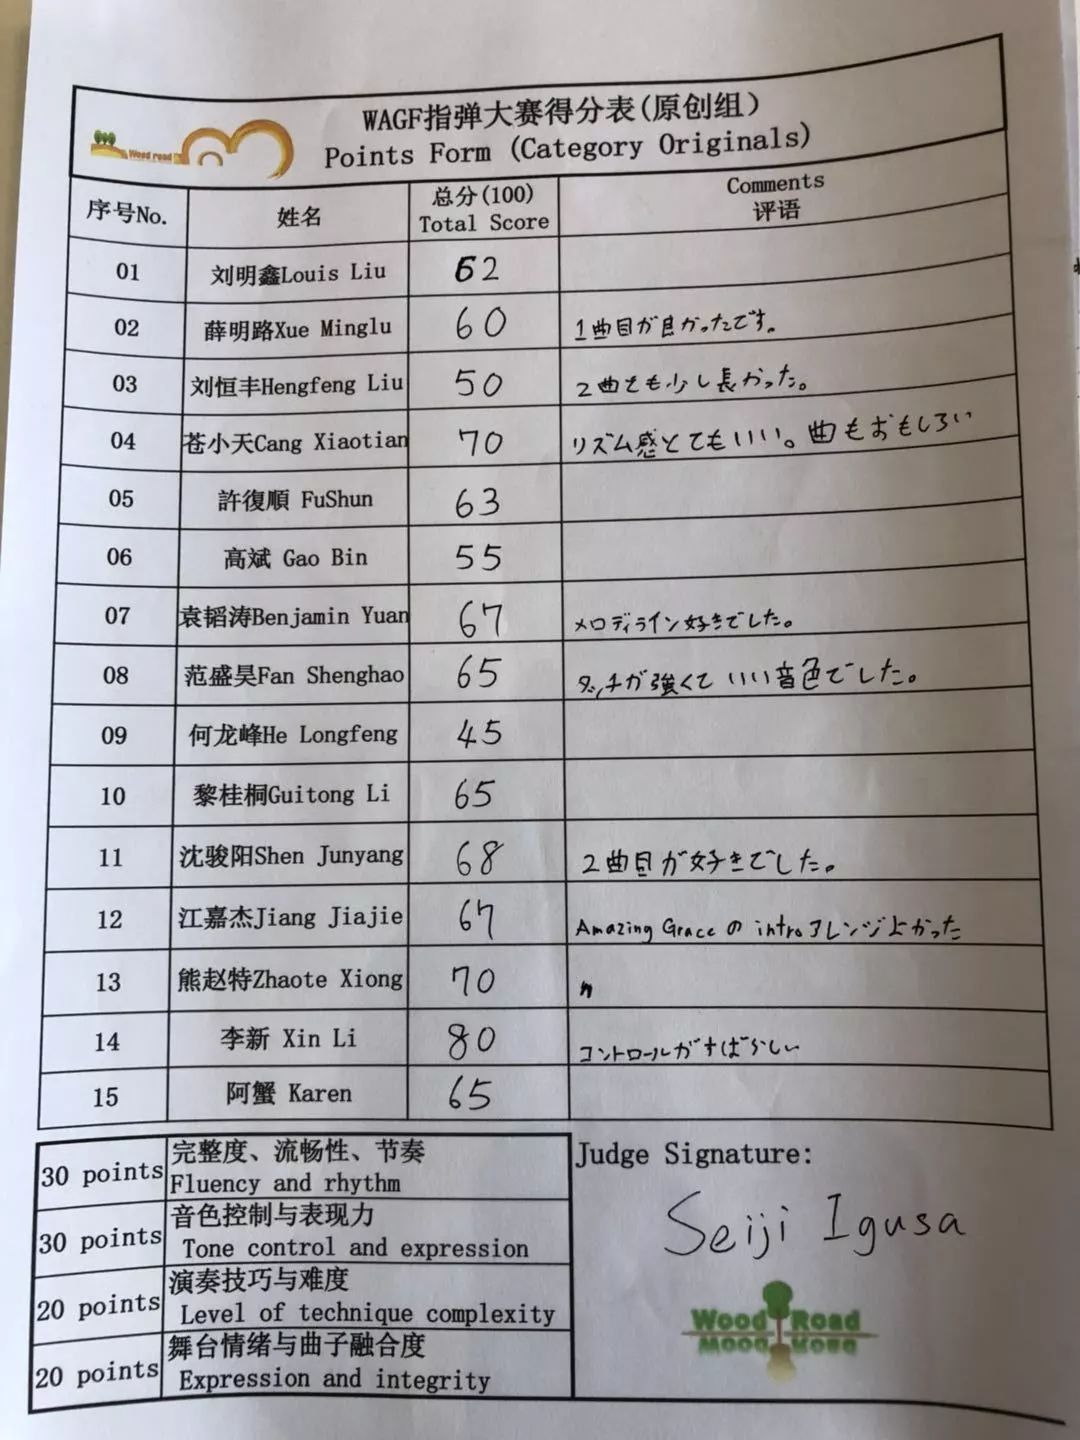 Wood road
WAGF指弹大赛得分表(原创组)
Points Form (Category Originals)
序号No. 姓名 总分(100) Total Score Comments 评语
01 刘明鑫Louis Liu 62
02 薛明路Xue Minglu 60 1曲目が良かったです。
03 刘恒丰Hengfeng Liu 50 2曲とも少し長かった。
04 苍小天Cang Xiaotian 70 リズム感とてもいい。曲もおもしろい
05 許復順 FuShun 63
06 高斌 Gao Bin 55
07 袁韬涛Benjamin Yuan 67 メロディライン好きでした。
08 范盛昊Fan Shenghao 65 タッチが強くていい音色でした。
09 何龙峰He Longfeng 45
10 黎桂桐Guitong Li 65
11 沈骏阳Shen Junyang 68 2曲目が好きでした。
12 江嘉杰Jiang Jiajie 67 Amazing Graceのintroアレンジよかった
13 熊赵特Zhaote Xiong 70 〃
14 李新 Xin Li 80 コントロールがすばらしい
15 阿蟹 Karen 65
30 points 完整度、流畅性、节奏
Fluency and rhythm
30 points 音色控制与表现力
Tone control and expression
20 points 演奏技巧与难度
Level of technique complexity
20 points 舞台情绪与曲子融合度
Expression and integrity
Judge Signature:
Seiji Igusa
Wood Road